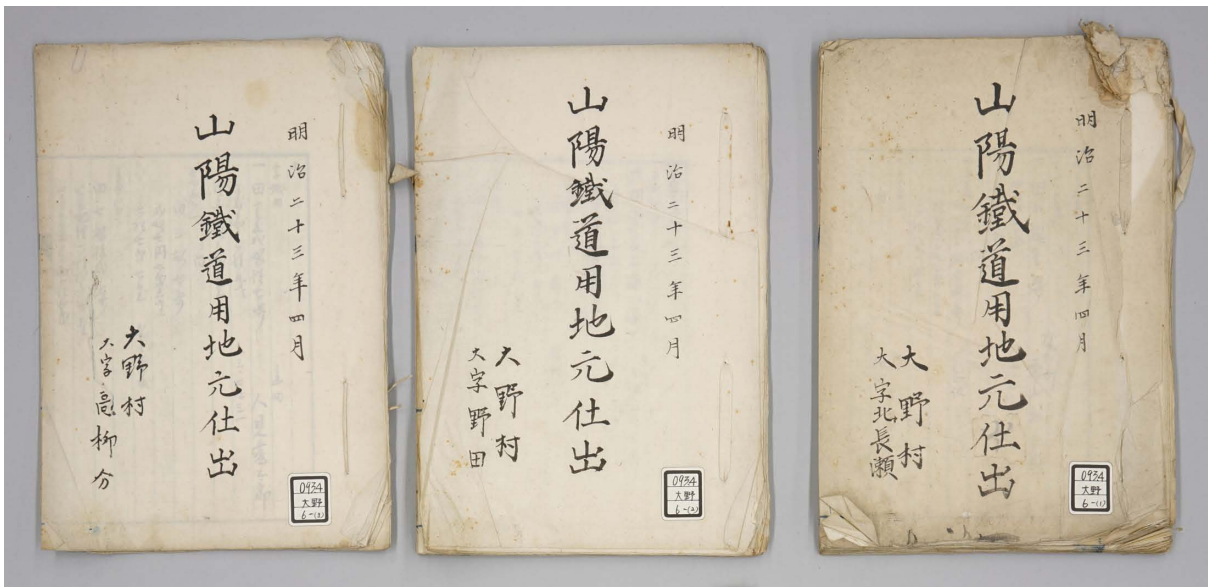 明治二十三年四月
山陽鐵道用地元仕出
大野村
大字北長瀬
093.4
大野
6-(1)
明治二十三年四月
山陽鐵道用地元仕出
大野村
大字野田
093.4
大野
6-(2)
明治二十三年四月
山陽鐵道用地元仕出
大野村
大字高柳分
093.4
大野
6-(3)